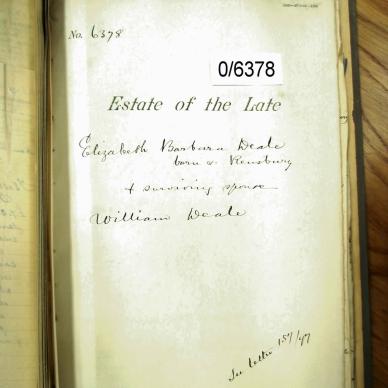 No. 6378
0/6378
Estate of the Late
Elizabeth Barbara Deale
born v. Rensburg
& surviving spouse
William Deale
See letter 157/97